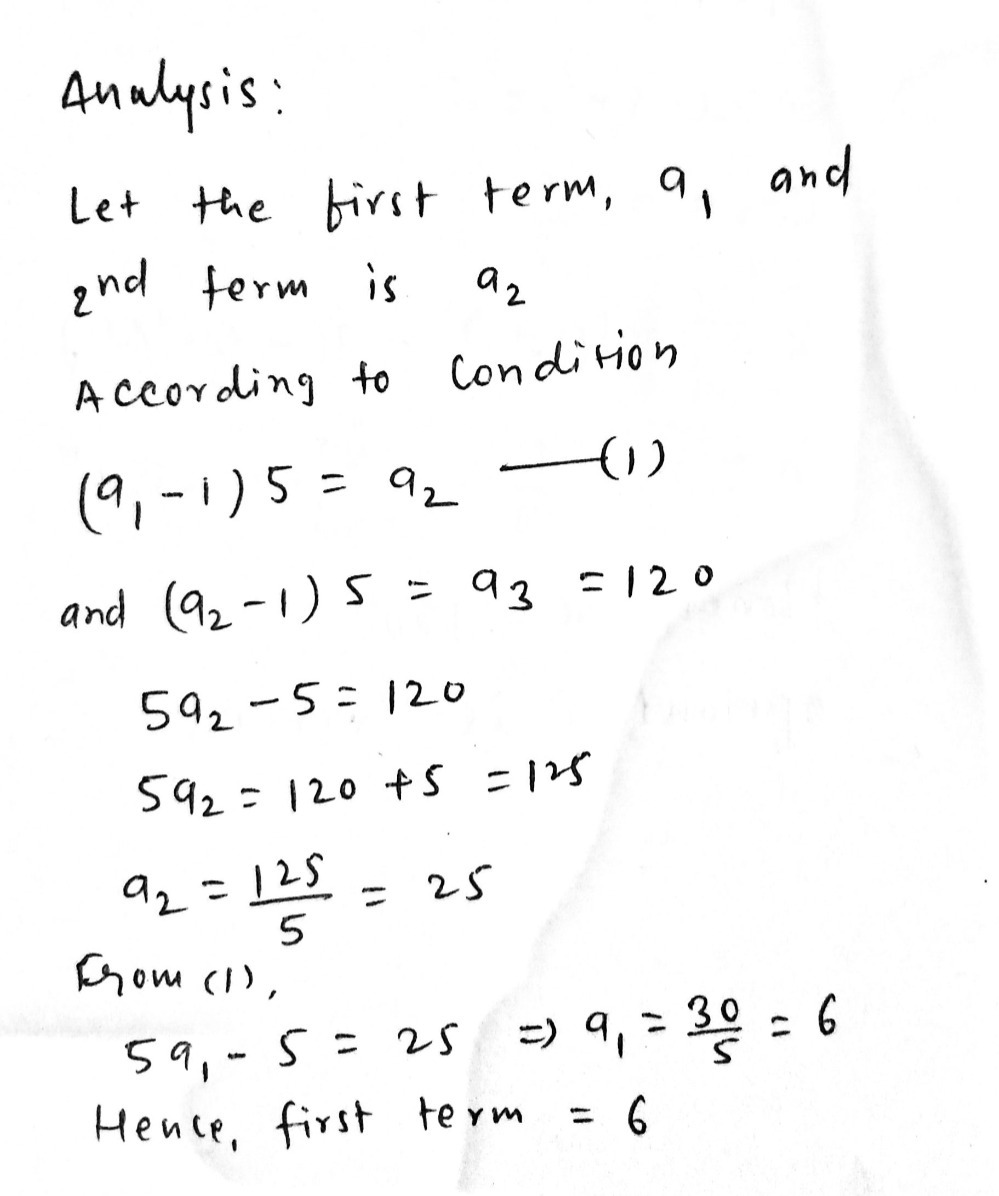 Analysis:
Let the first term, a₁ and
2nd term is a₂
According to Condition
(a₁ - 1) 5 = a₂ —(1)
and (a₂ - 1) 5 = a₃ = 120
5a₂ - 5 = 120
5a₂ = 120 + 5 = 125
a₂ = 125/5 = 25
From (1),
5a₁ - 5 = 25 ⇒ a₁ = 30/5 = 6
Hence, first term = 6